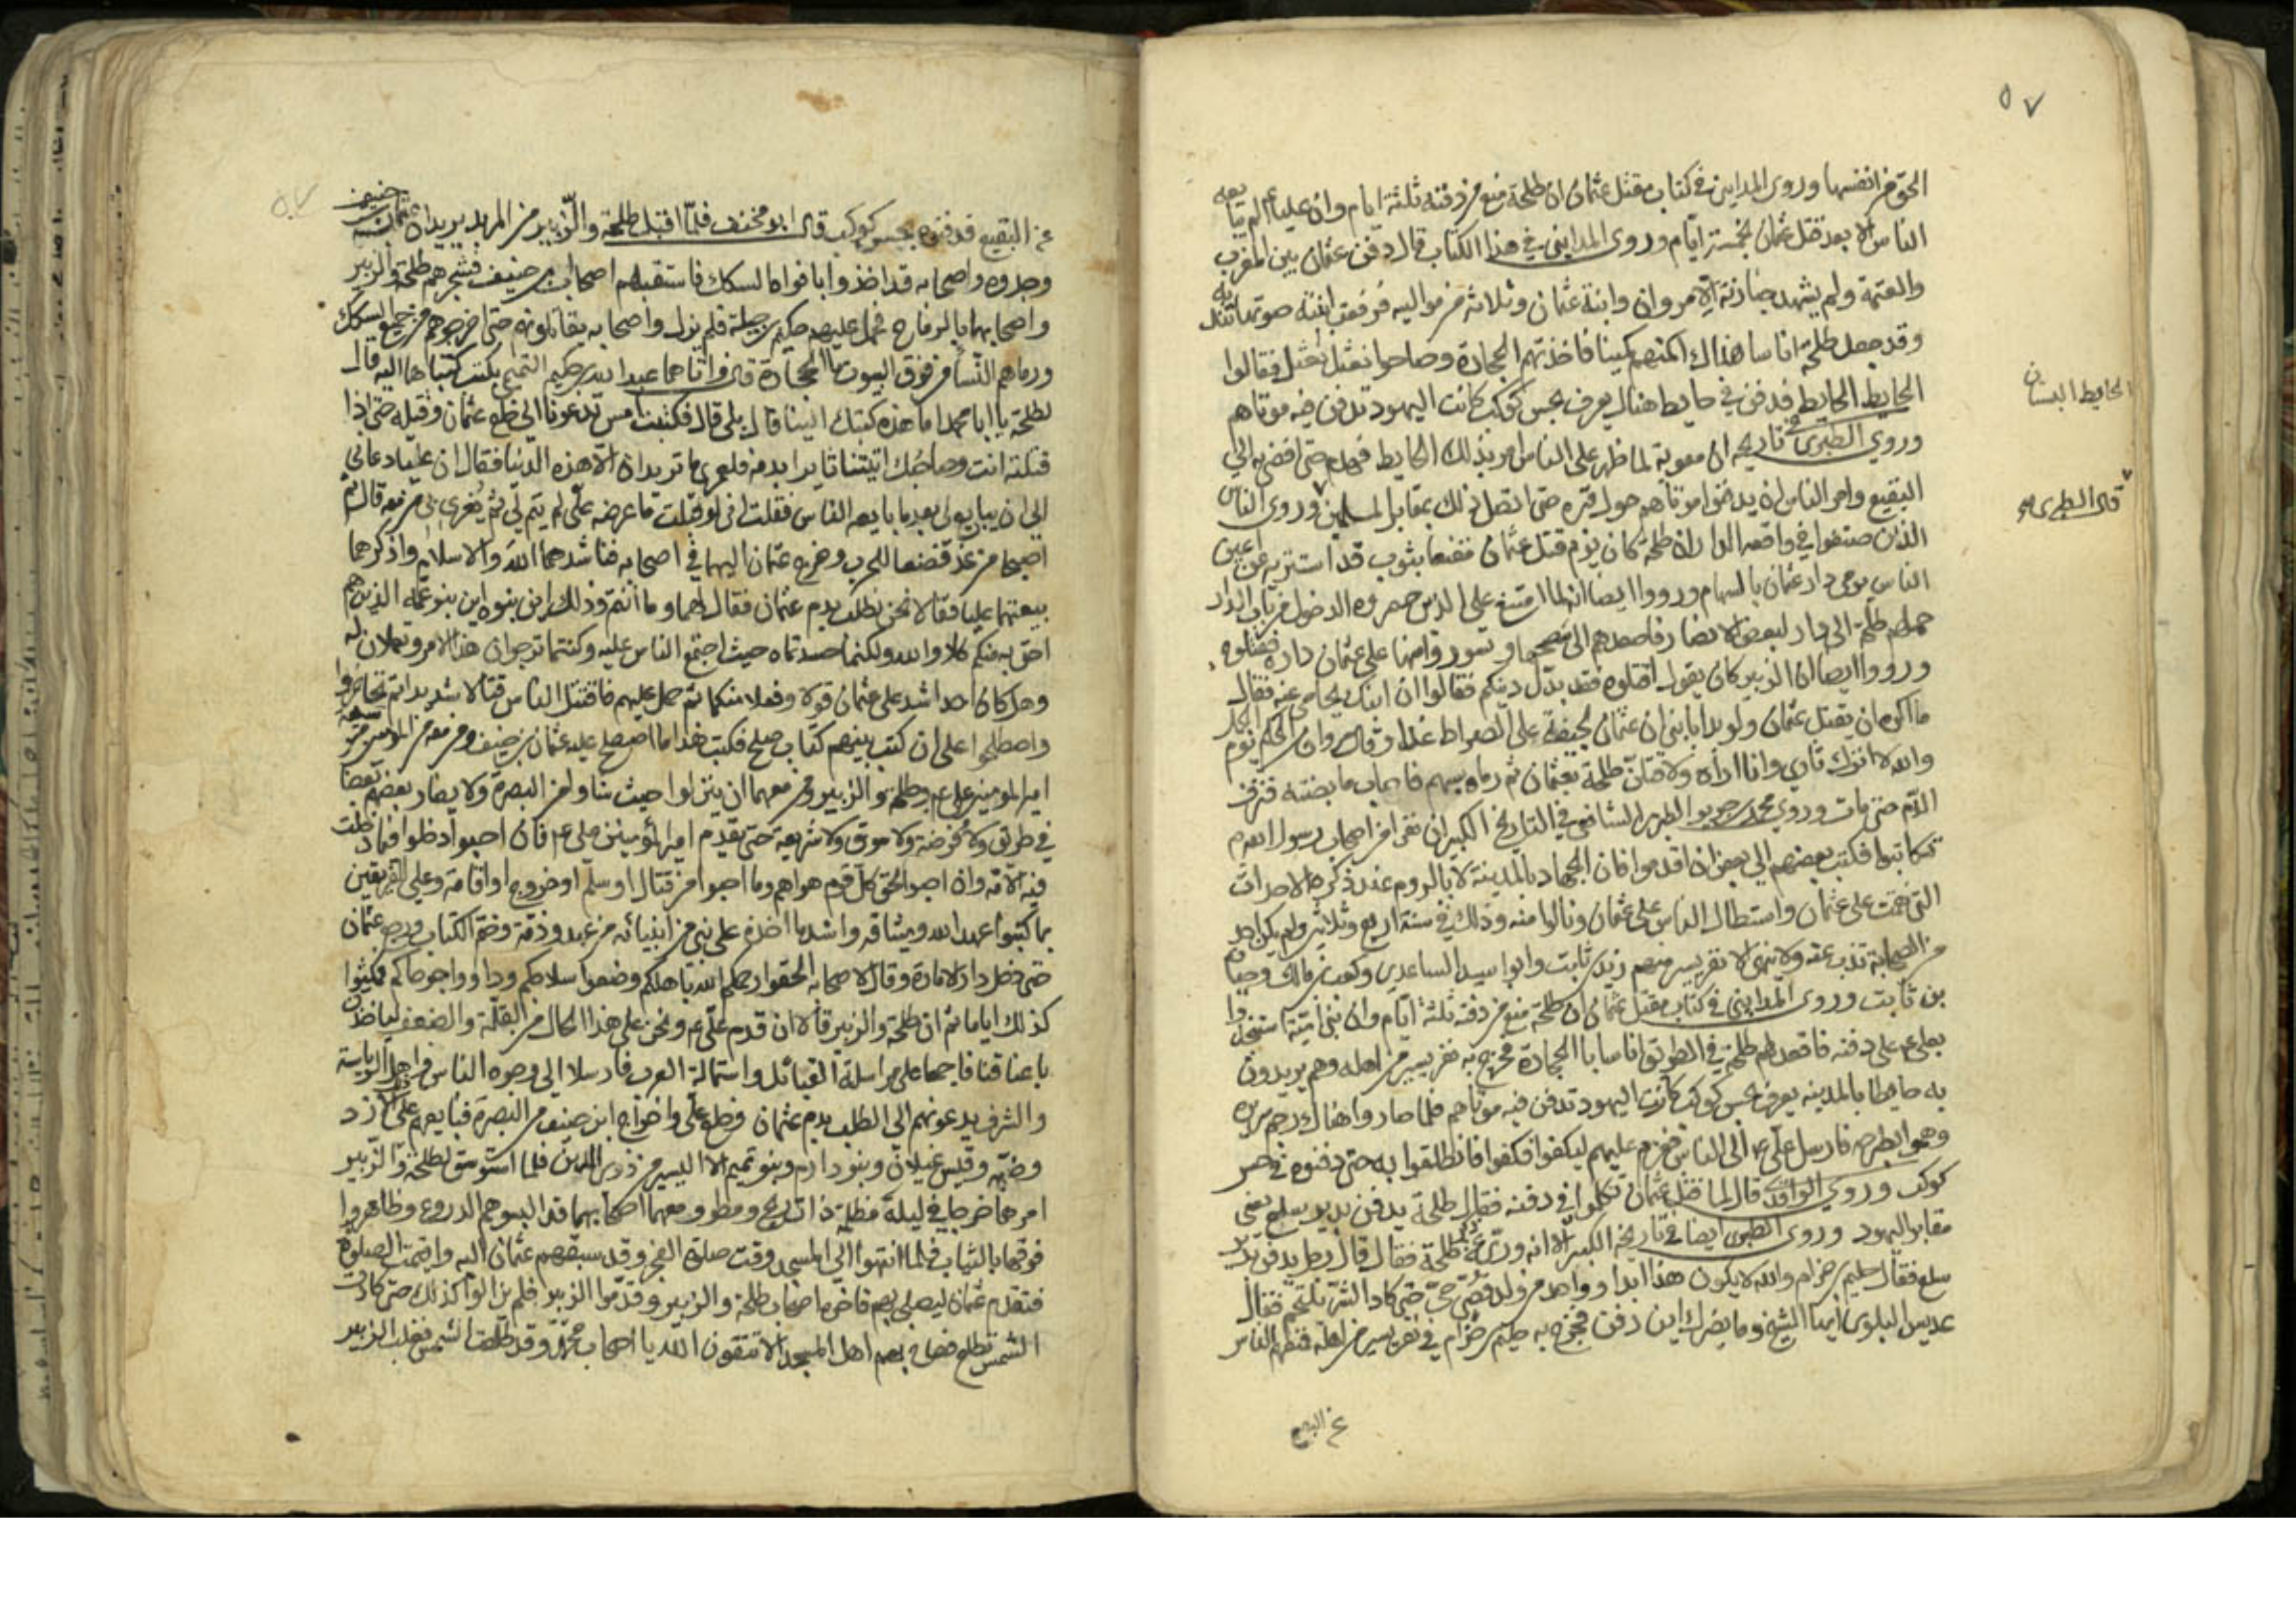 ٥٧
الحق من انفسهما وروى المدايني في كتاب مقتل عثمان ان طلحة منع من دفنه ثلثة ايام وان عليا ع لم يبايعه
الناس الا بعد قتل عثمان بخمسة ايام وروى المدايني في هذا الكتاب قال دفن عثمان بين المغرب
والعتمة ولم يشهد جنازته الا مروان وابنة عثمان وثلاثة من مواليه فرفعت ابنته صوتها تندبه
وقد جعل طلحة اناسا هناك اكمنهم كمينا فاخذتهم الحجارة وصاحوا نعثل نعثل فقالوا
الحايط الحايط فدفن في حايط هناك يعرف بحش كوكب كانت اليهود تدفن فيه موتاهم
الحايط البستان
وروى الطبري في تاريخه ان معوية لما ظهر على الناس امر بذلك الحايط فهدم حتى افضى به الى
البقيع وامر الناس ان يدفنوا موتاهم حول قبره حتى اتصل ذلك بمقابر المسلمين وروى الناس
قال الطبري
الذين صنفوا في واقعة الدار ان طلحة كان يوم قتل عثمان مقنعا بثوب قد استتر به عن اعين
الناس يرمي دار عثمان بالسهام ورووا ايضا انه لما امتنع على الذين حصروه الدخول من باب الدار
حملهم طلحة الى دار لبعض الانصار فاصعدهم الى سطحها وتسوروا منها على عثمان داره فقتلوه
ورووا ايضا ان الزبير كان يقول اقتلوه فقد بدل دينكم فقالوا ان ابنك يحامي عنه فقال
ما اكره ان يقتل عثمان ولو بدا بابني ان عثمان لجيفة على الصراط غدا وقال مروان بن الحكم يوم الجمل
والله لا اترك ثاري وانا اراه ولاقتلن طلحة بعثمان ثم رماه بسهم فاصاب مابضه فنزف
الدم حتى مات وروى محمد بن جرير الطبري الشافعي في التاريخ الكبير ان نفرا من اصحاب رسول الله
تكاتبوا فكتب بعضهم الى بعض ان اقدموا فان الجهاد بالمدينة لا بالروم عند ذكره الاحداث
التي نقمت على عثمان واستطال الناس على عثمان ونالوا منه وذلك في سنة اربع وثلاثين ولم يكن احد
من الصحابة يذب عنه ولا ينهى الا نفر يسير منهم زيد بن ثابت وابو اسيد الساعدي وكعب بن مالك وحسان
بن ثابت وروى المدايني في كتاب مقتل عثمان ان طلحة منع من دفنه ثلثة ايام وان بني امية استنجدوا
بعلي ع على دفنه فاقعد لهم طلحة في الطريق اناسا بالحجارة فخرج به نفر يسير من اهله وهم يريدون
به حايطا بالمدينه يعرف بحش كوكب كانت اليهود تدفن فيه موتاهم فلما صار هناك رجم سريره
وهموا بطرحه فارسل علي ع الى الناس فعزم عليهم ليكفوا فكفوا فانطلقوا به حتى دفنوه في حش
كوكب وروى الواقدي قال لما قتل عثمان تكلموا في دفنه فقال طلحة يدفن بدير سلع يعني
مقابر اليهود وروى الطبري ايضا في تاريخه الكبير الا انه ورى عن طلحة فقال قال رجل يدفن بدير
سلع فقال حكيم بن حزام والله لا يكون هذا ابدا وواحد من ولد قصي حي حتى كاد الشر يلتحم فقال
عديس البلوي ايها الشيخ وما يضرك اين دفن فخرج به حكيم بن حزام في نفر يسير من اهله فمنعهم الناس
عن البقيع
٥٧
عن البقيع فدفنوه بحش كوكب قال ابو مخنف فلما اقبل طلحة والزبير من المربد يريدان عثمان بن حنيف
وجدوه واصحابه قد اخذوا بافواه السكك فاستقبلهم اصحاب بن حنيف فشجرهم طلحة والزبير
واصحابهما بالرماح فحمل عليهم حكيم بن جبلة فلم يزل واصحابه يقاتلونهم حتى اخرجوهم من جميع السكك
ورماهم النساء من فوق البيوت بالحجارة قال واتاهما عبد الله بن حكيم التميمي بكتب كتباها اليه قال
لطلحة يا ابا محمد اما هذه كتبك الينا قال بلى قال فكتبت امس تدعونا الى خلع عثمان وقتله حتى اذا
قتلته انت وصاحبك اتيتنا ثايرا بدمه فلعمري ما تريدان الا هذه الدنيا فقال ان عليا دعاني
الى ان يبايع لي بعد ما بايعه الناس فقلت لو قبلت ما عرضه علي لم يتم لي ثم يغري بي من معه قال ثم
اصبحا من غد فصفا للحرب وخرج عثمان اليهما في اصحابه فناشدهما الله والاسلام واذكرهما
بيعتهما عليا فقالا نحن نطلب بدم عثمان فقال لهما وما انتم وذلك اين بنوه اين بنو عمه الذين هم
احق به منكم كلا والله ولكنما حسدتماه حيث اجتمع الناس عليه وكنتما ترجوان هذا الامر وتعملان له
وهل كان احد اشد على عثمان قولا وفعلا منكما ثم حمل عليهم فاقتتل الناس قتالا شديدا ثم تحاجزوا
واصطلحوا على ان كتب بينهم كتاب صلح فكتب هذا ما اصطلح عليه عثمان بن حنيف ومن معه من المومنين من شيعة
امير المومنين علي ع وطلحة والزبير ومن معهما ان ينزلوا حيث شاوا من البصرة ولا يضار بعضهم بعضا
في طريق ولا فرضة ولا سوق ولا شريعة حتى يقدم امير المؤمنين علي ع فان احبوا دخلوا فيما دخلت
فيه الامة وان احبوا لحق كل قوم بهواهم وما احبوا من قتال او سلم او خروج او اقامة وعلى الفريقين
بما كتبوا عهد الله وميثاقه واشد ما اخذه على نبي من انبيائه من عهد وذمة وختم الكتاب ورجع عثمان
حتى دخل دار الامارة وقال لاصحابه الحقوا رحمكم الله باهلكم وضعوا سلاحكم وداووا جرحاكم فمكثوا
كذلك اياما ثم ان طلحة والزبير قالا ان قدم علي ع ونحن على هذا الحال من القلة والضعف لياخذن
باعناقنا فاجمعا على مراسلة القبائل واستمالة العرب فارسلا الى وجوه الناس واهل الرياسة
والشرف يدعونهم الى الطلب بدم عثمان وخلع علي واخراج ابن حنيف من البصرة فبايعهم على ذلك الازد
وضبه وقيس غيلان وبنو دارم وبنو تميم الا اليسير من ذوي الدين فلما استوسق لطلحة والزبير
امرهما خرجا في ليلة مظلمة ذات ريح ومطر ومعهما اصحابهما قد البسوهم الدروع وظاهروا
فوقها بالثياب فلما انتهوا الى المسجد وقت صلوة الفجر وقد سبقهم عثمان اليه واقيمت الصلوة
فتقدم عثمان ليصلي بهم فاخره اصحاب طلحة والزبير وقدموا الزبير فلم يزالوا كذلك حتى كادت
الشمس تطلع فصاح بهم اهل المسجد الا تتقون الله يا اصحاب محمد وقد طلعت الشمس فغلب الزبير